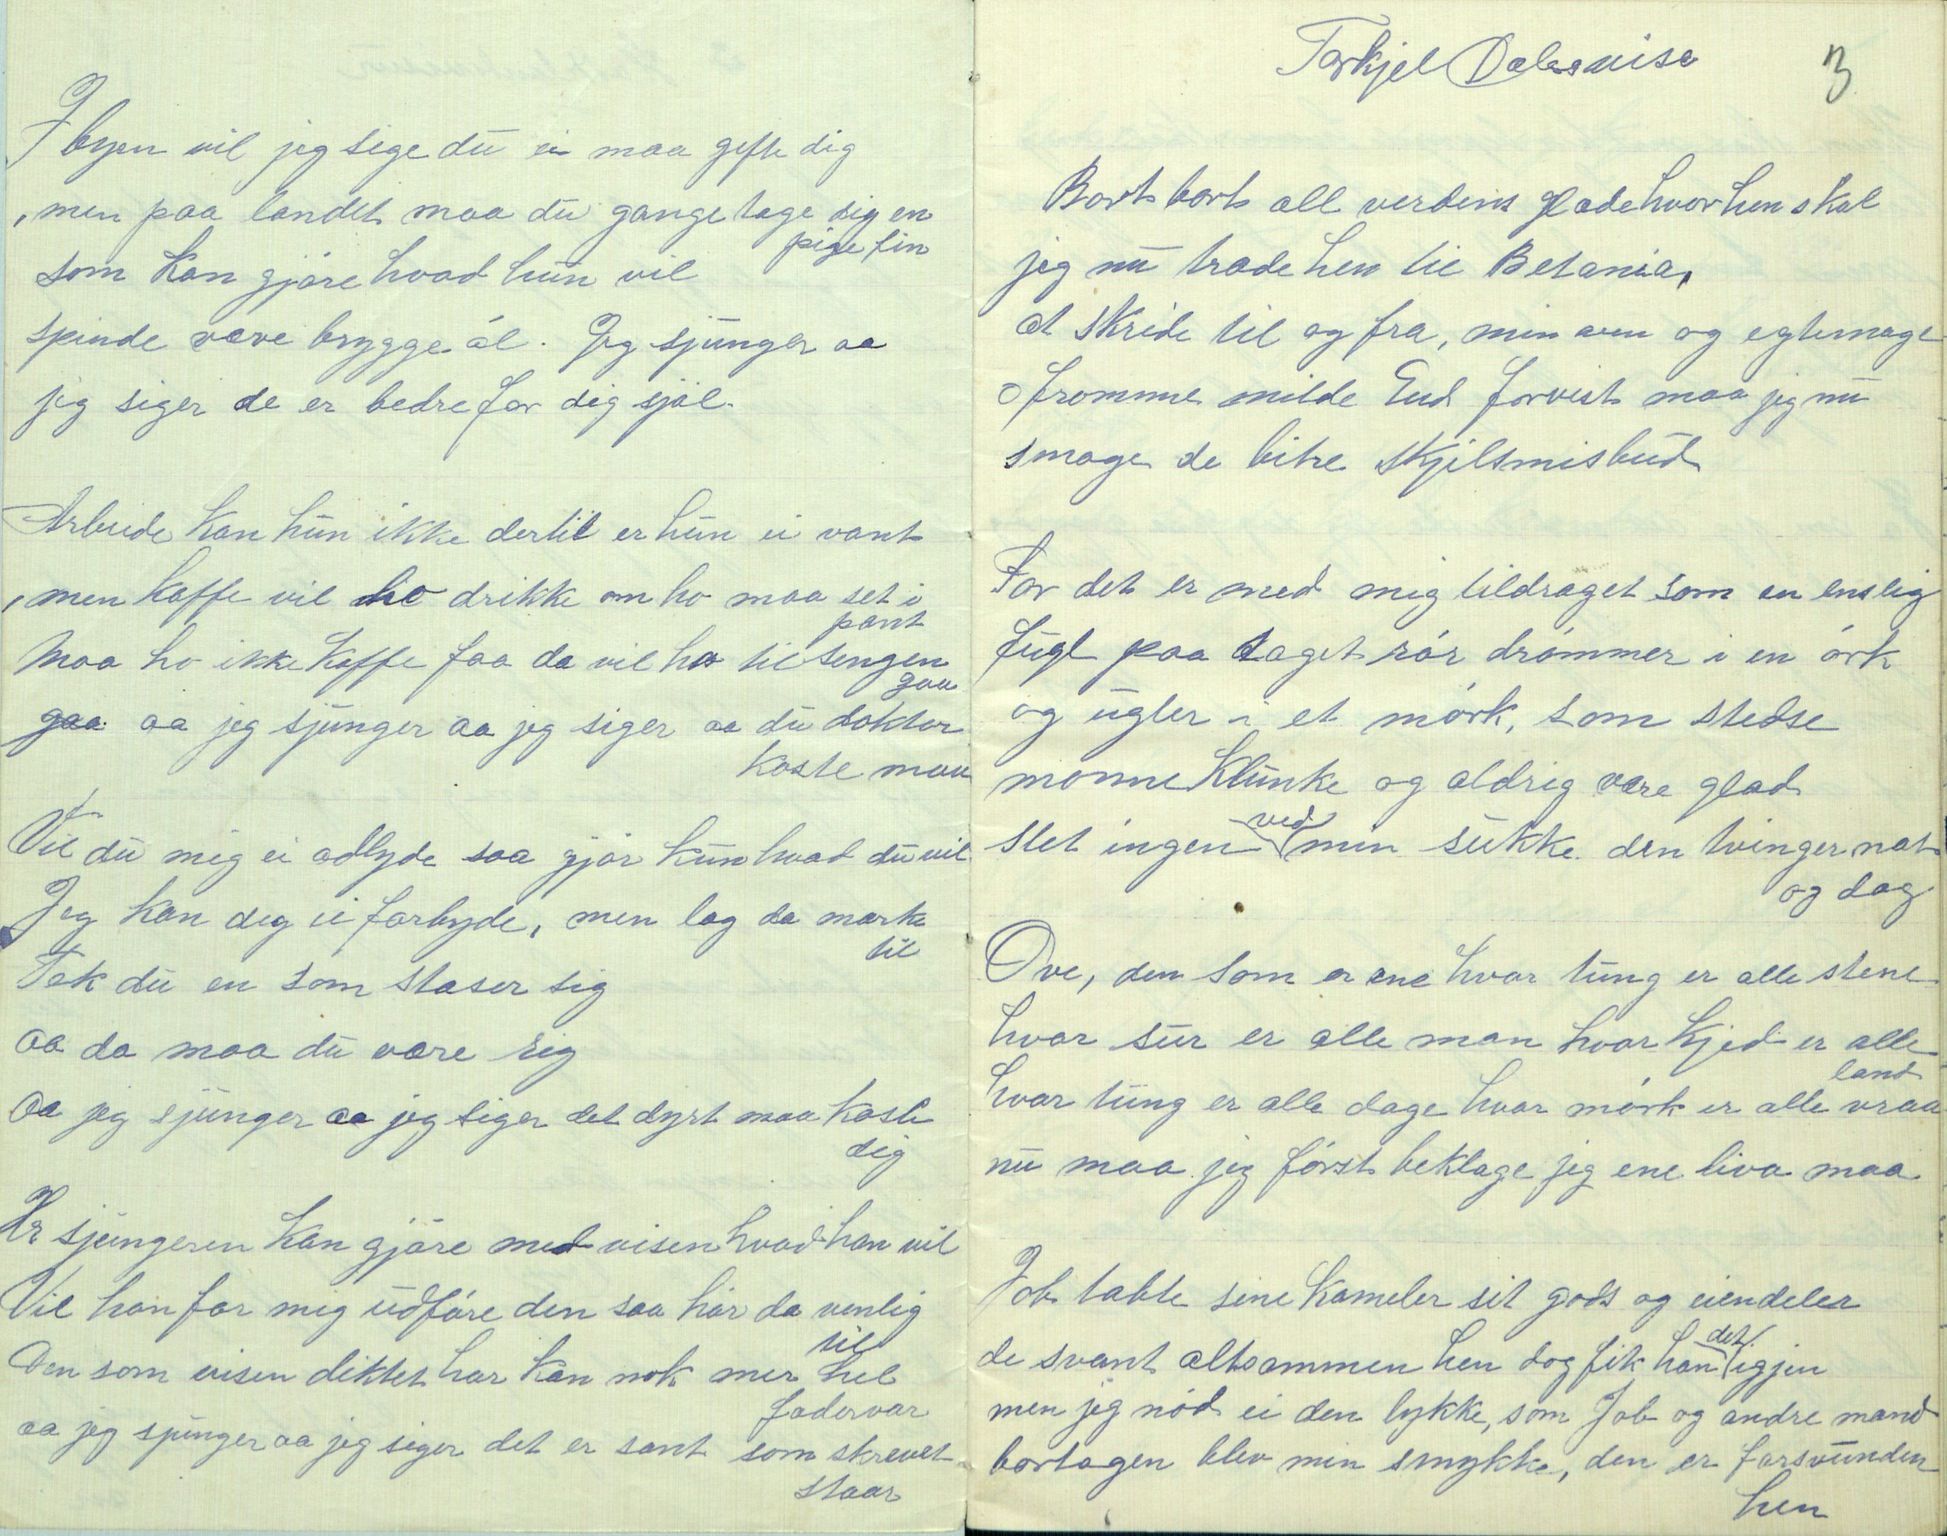 I byen vil jeg sige du ei maa gifte dig
, men paa landet maa du gange tage dig en
pige fin
som kan gjöre hvad hun vil
spinde væve brygge öl. Jeg sjunger aa
jeg siger de er bedre for dig sjöl.
Arbeide kan hun ikke dertil er hun ei vant
, men kaffe vil ho drikke om ho maa set i
pant
Maa ho ikke kaffe faa da vil ho til sengen
gaa
gaa aa jeg sjunger aa jeg siger aa du doktor
koste maa
Vil du mig ei adlyde saa gjör kun hvad du vil
Jeg kan deg ei forbyde, men lag da mærke
til
Tak du en som staser sig
aa da maa du være rig
aa jeg sjunger aa jeg siger det dyrt maa koste
dig
Hr sjungeren kan gjöre med visen hvad han vil
Vil han for mig udföre den saa hör da venlig
til
Den som visen diktet har kan nok mer hel
fadervar
aa jeg sjunger aa jeg siger det er sant som skrevet
staar
Torkjel Dalesvisa
3
Bort bort all verdens glæde hvorhen skal
jeg nu træde hen til Betania,
at skride til og fra, min ven og egtemage
o fromme milde Gud forvist maa jeg nu
smage de bitre skjilsmisbud
For det er med mig tildraget som en enslig
fugl paa taget rör drömmer i en örk
og ugler i et mörk, som stedse
monne klunke og aldrig være glad
slet ingen ved min sukke den tvinger nat
og dag
Ove, den som er ene hvor tung er alle stene
hvor sur er alle man hvor kjed er alle
land
hvor tung er alle dage hvor mörk er alle vraa
nu maa jeg först beklage jeg ene liva maa
Job tabte sine kameler sit gods og eiendeler
de svant altsammen hen dog fik han det igjen
men jeg nöd ei den lykke, som Job og andre mænd
bortagen blev min smykke, den er forsvunden
hen